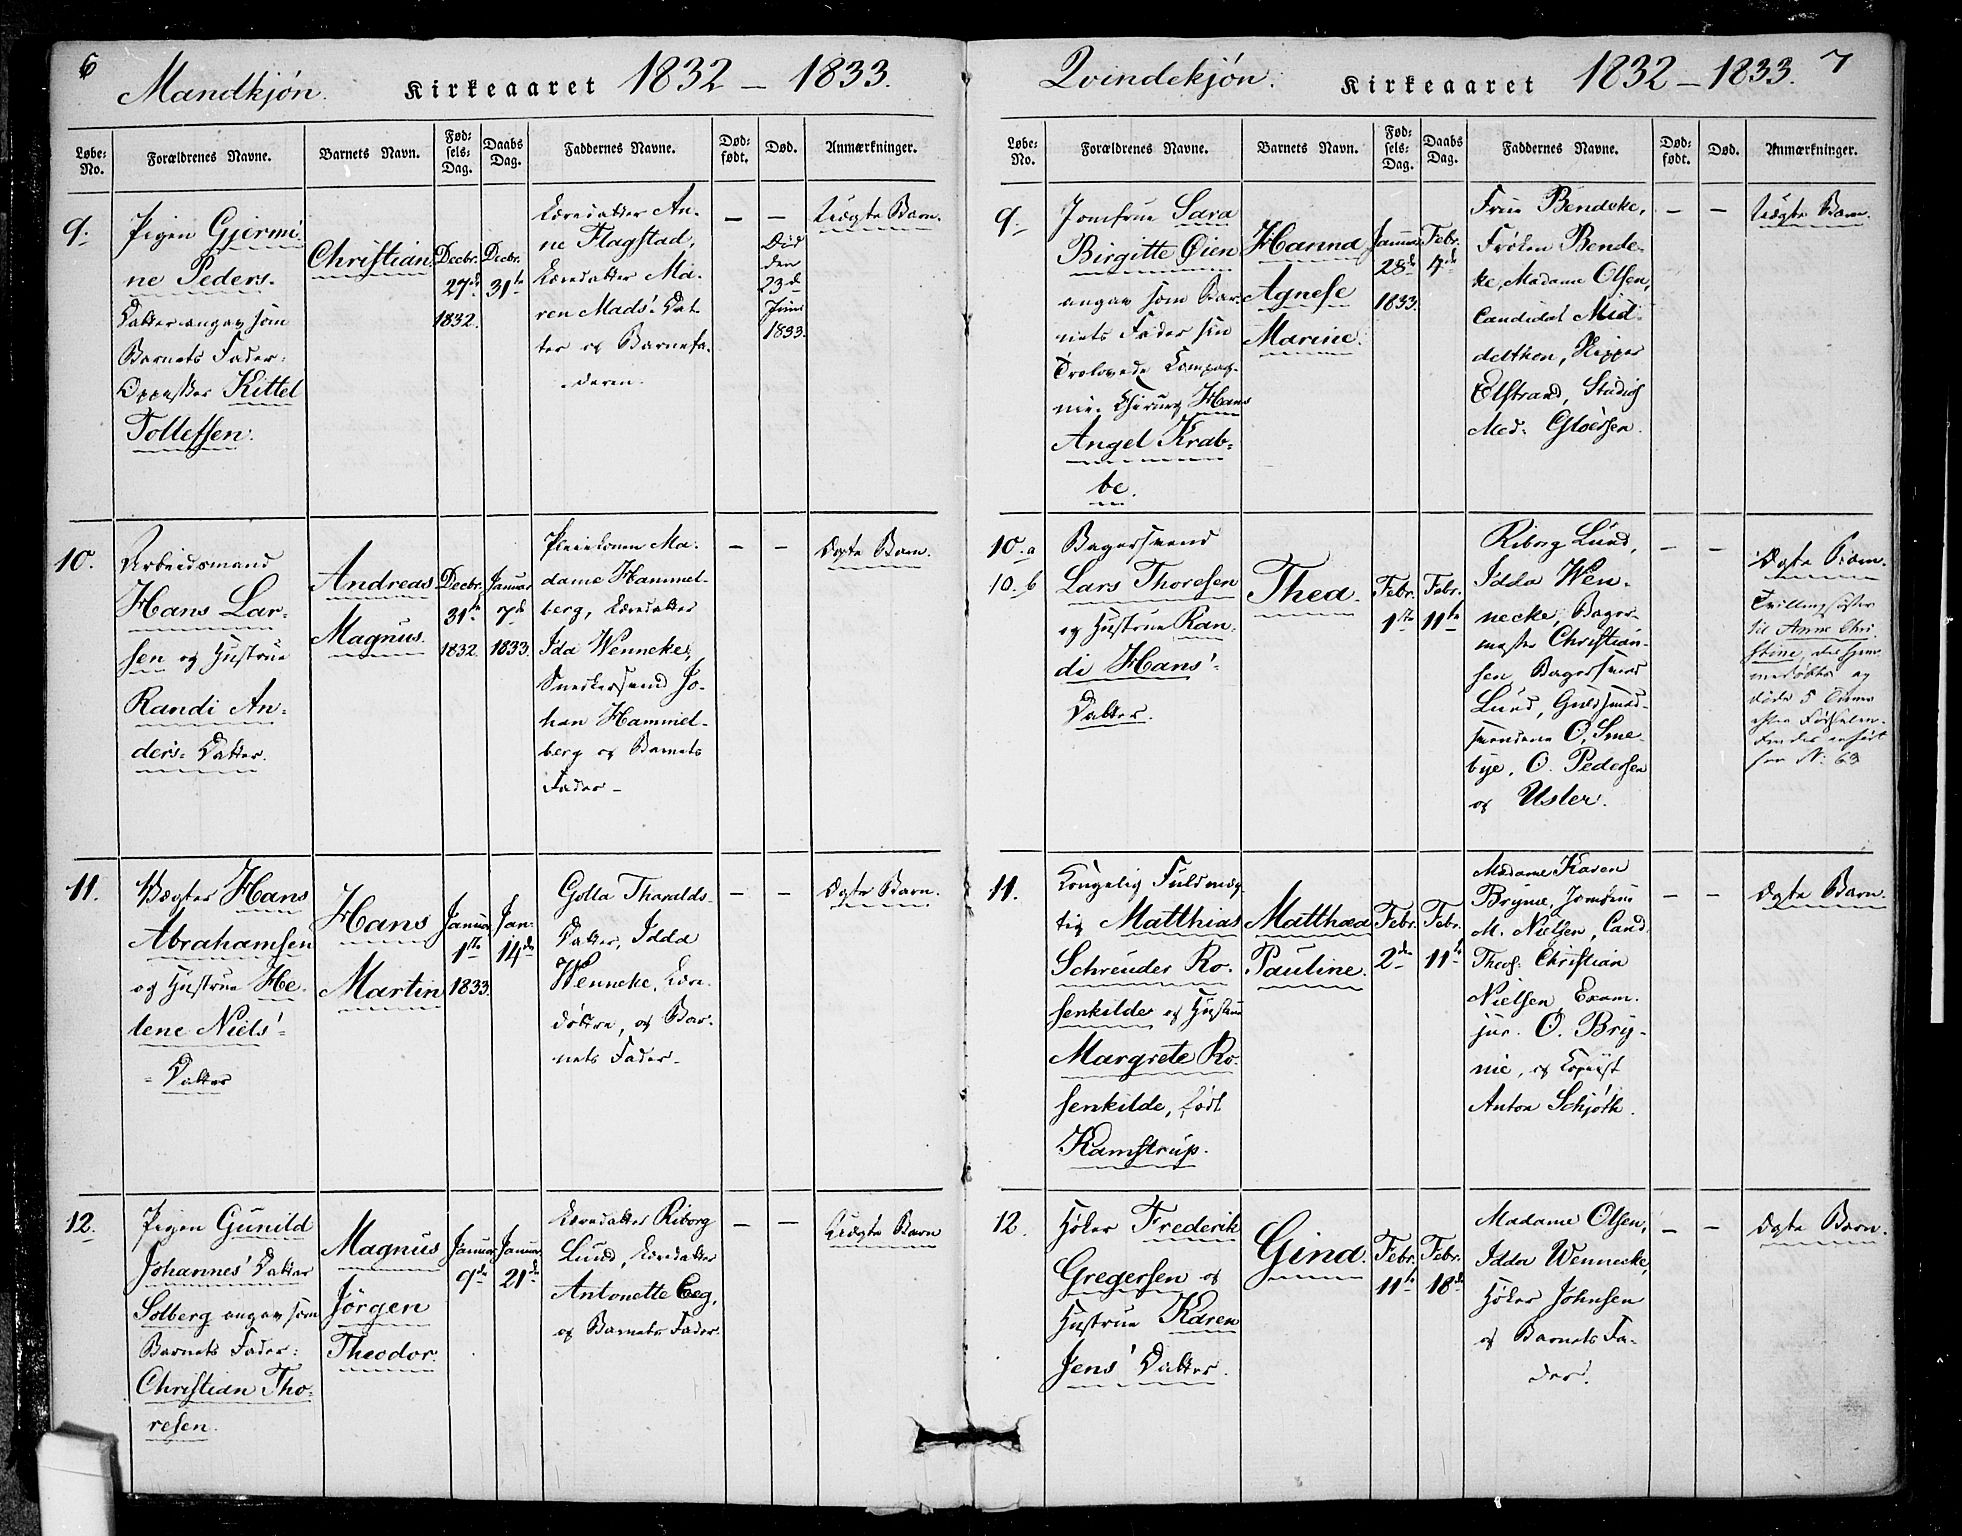 6
Mandkjøn. Kirkeaaret 1832 – 1833.
Løbe-No. Forældrenes Navne. Barnets Navn. Fødsels-Dag. Daabs Dag. Faddernes Navne. Død-født. Død. Anmærkninger.
9.
Pigen Gjermi-
ne Peders-
Datter angav som
Barnets Fader:
Kittel
Tollefsen.
Christian
Decbr.
27de
1832.
Decbr.
31te
Læredatter An-
ne Flagstad,
Læredatter Ma-
ren Mads' Dat-
ter og Barnefa-
deren.
–
–
Død
den
23de
Juni
1833.
Uægte Barn.
10.
Arbeidsmand
Hans Lar-
sen og Hustrue
Randi An-
ders- Datter.
Andreas
Magnus.
Decbr.
31te
1832.
Januar
7de
1833.
Pleiekonen Ma-
dame Hammel-
berg, Læredatter
Ida Wenneke,
Snedkersvend Jo-
han Hammel-
berg og Barnets
Fader –
–
–
Ægte Barn.
11.
Vægter Hans
Abrahamsen
og Hustrue He-
lene Niels'-
Datter
Hans
Martin
Januar
1ste
1833.
Jan.
14de
Golla Tharalds-
Datter, Idda
Wenneke, Lære-
døttre, og Bar-
nets Fader –
–
–
Ægte Barn.
12.
Pigen Gunild
Johannes' Datter
Solberg angav som
Barnets Fader:
Christian Tho-
resen.
Magnus
Jörgen
Theodor.
Januar
9de
Januar.
21de
Læredatter Riborg
Lund, Læredatter
Antonette
og Barnets Fader.
–
–
Uægte Barn
7
Qvindekjøn. Kirkeaaret 1832 – 1833.
Løbe-No. Forældrenes Navne. Barnets Navn. Fød-sels-Dag. Daabs Dag. Faddernes Navne. Død-født. Død. Anmærkninger.
9.
Jomfrue Sara
Birgitte Øien
angav som Bar-
nets Fader sin
Trolovede Compag-
nie- Chirurg Hans
Angel Krab-
be.
Hanna
Agnese
Marine.
Januar
28de
1833.
Febr.
4de
Frue Bendeke,
Frøken Bende-
ke, Madame Olsen,
Candidat Mid-
delthon, Skipper
Elstrand, Studios
Med: Gloersen.
–
–
Uægte Barn.
10.a
10.b
Bagersvend
Lars Thoresen
og Hustrue Ran-
di Hans'-
Datter.
Thea.
Febr.
1ste
Febr.
11te
Riborg Lund,
Idda Wen-
necke, Bager-
mester Christian-
sen, Bagersvend
Lund, Guldsmed-
svendene O. Sme-
bye, O. Pedersen
og Usler.
–
–
Ægte Barn.
Tvillingsøster
til Anne Chri-
stine, der hjem-
medøbtes og
døde 5 Timer
efter Fødselen.
Findes anført
No. 63
11.
Kongelig Fuldmæg-
tig Matthias
Schreuder Ro-
senkilde og Hustrue
Margrete Ro-
senkilde, født
Kamstrup.
Matthæa
Pauline.
Febr.
2den
Febr.
11te
Madame Karen
Bryme, Jomfrue
M. Nielsen, Cand
Theol: Christian
Nielsen, Exam.
jur. O. Bry-
nie, og Copiist
Anton Schjøth.
–
–
Ægte Barn.
12.
Høker Frederik
Gregersen og
Hustrue Karen
Jens' Datter.
Gina.
Febr.
11te
Febr.
18de
Madame Olsen,
Idda Wennecke,
Høker Johnsen
og Barnets Fa-
der.
–
–
Ægte Barn.